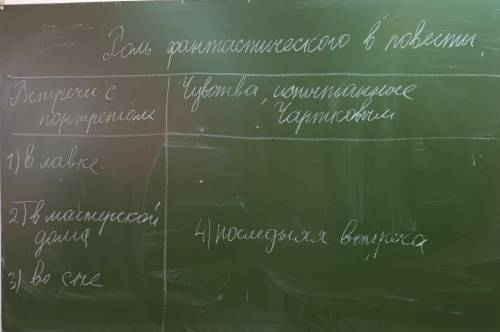 Роль фантастического в повести.
Встречи с
портретом
Чувства, испытанные
Чартковым
1) в лавке.
2) в мастерской
дома
3) во сне
4) последняя встреча